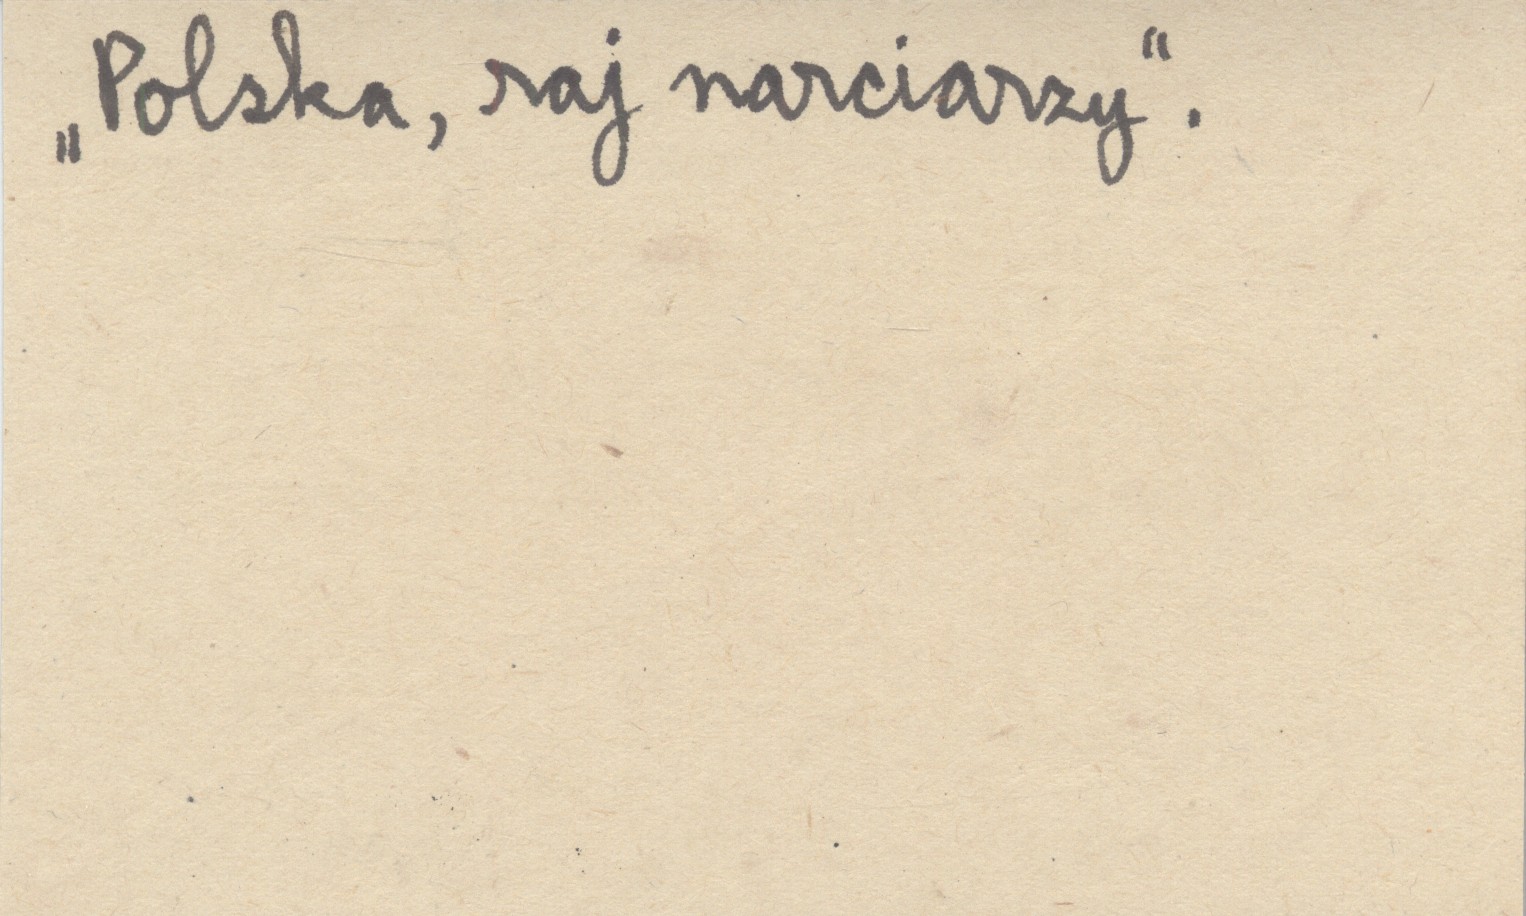 „Polska, raj narciarzy“.